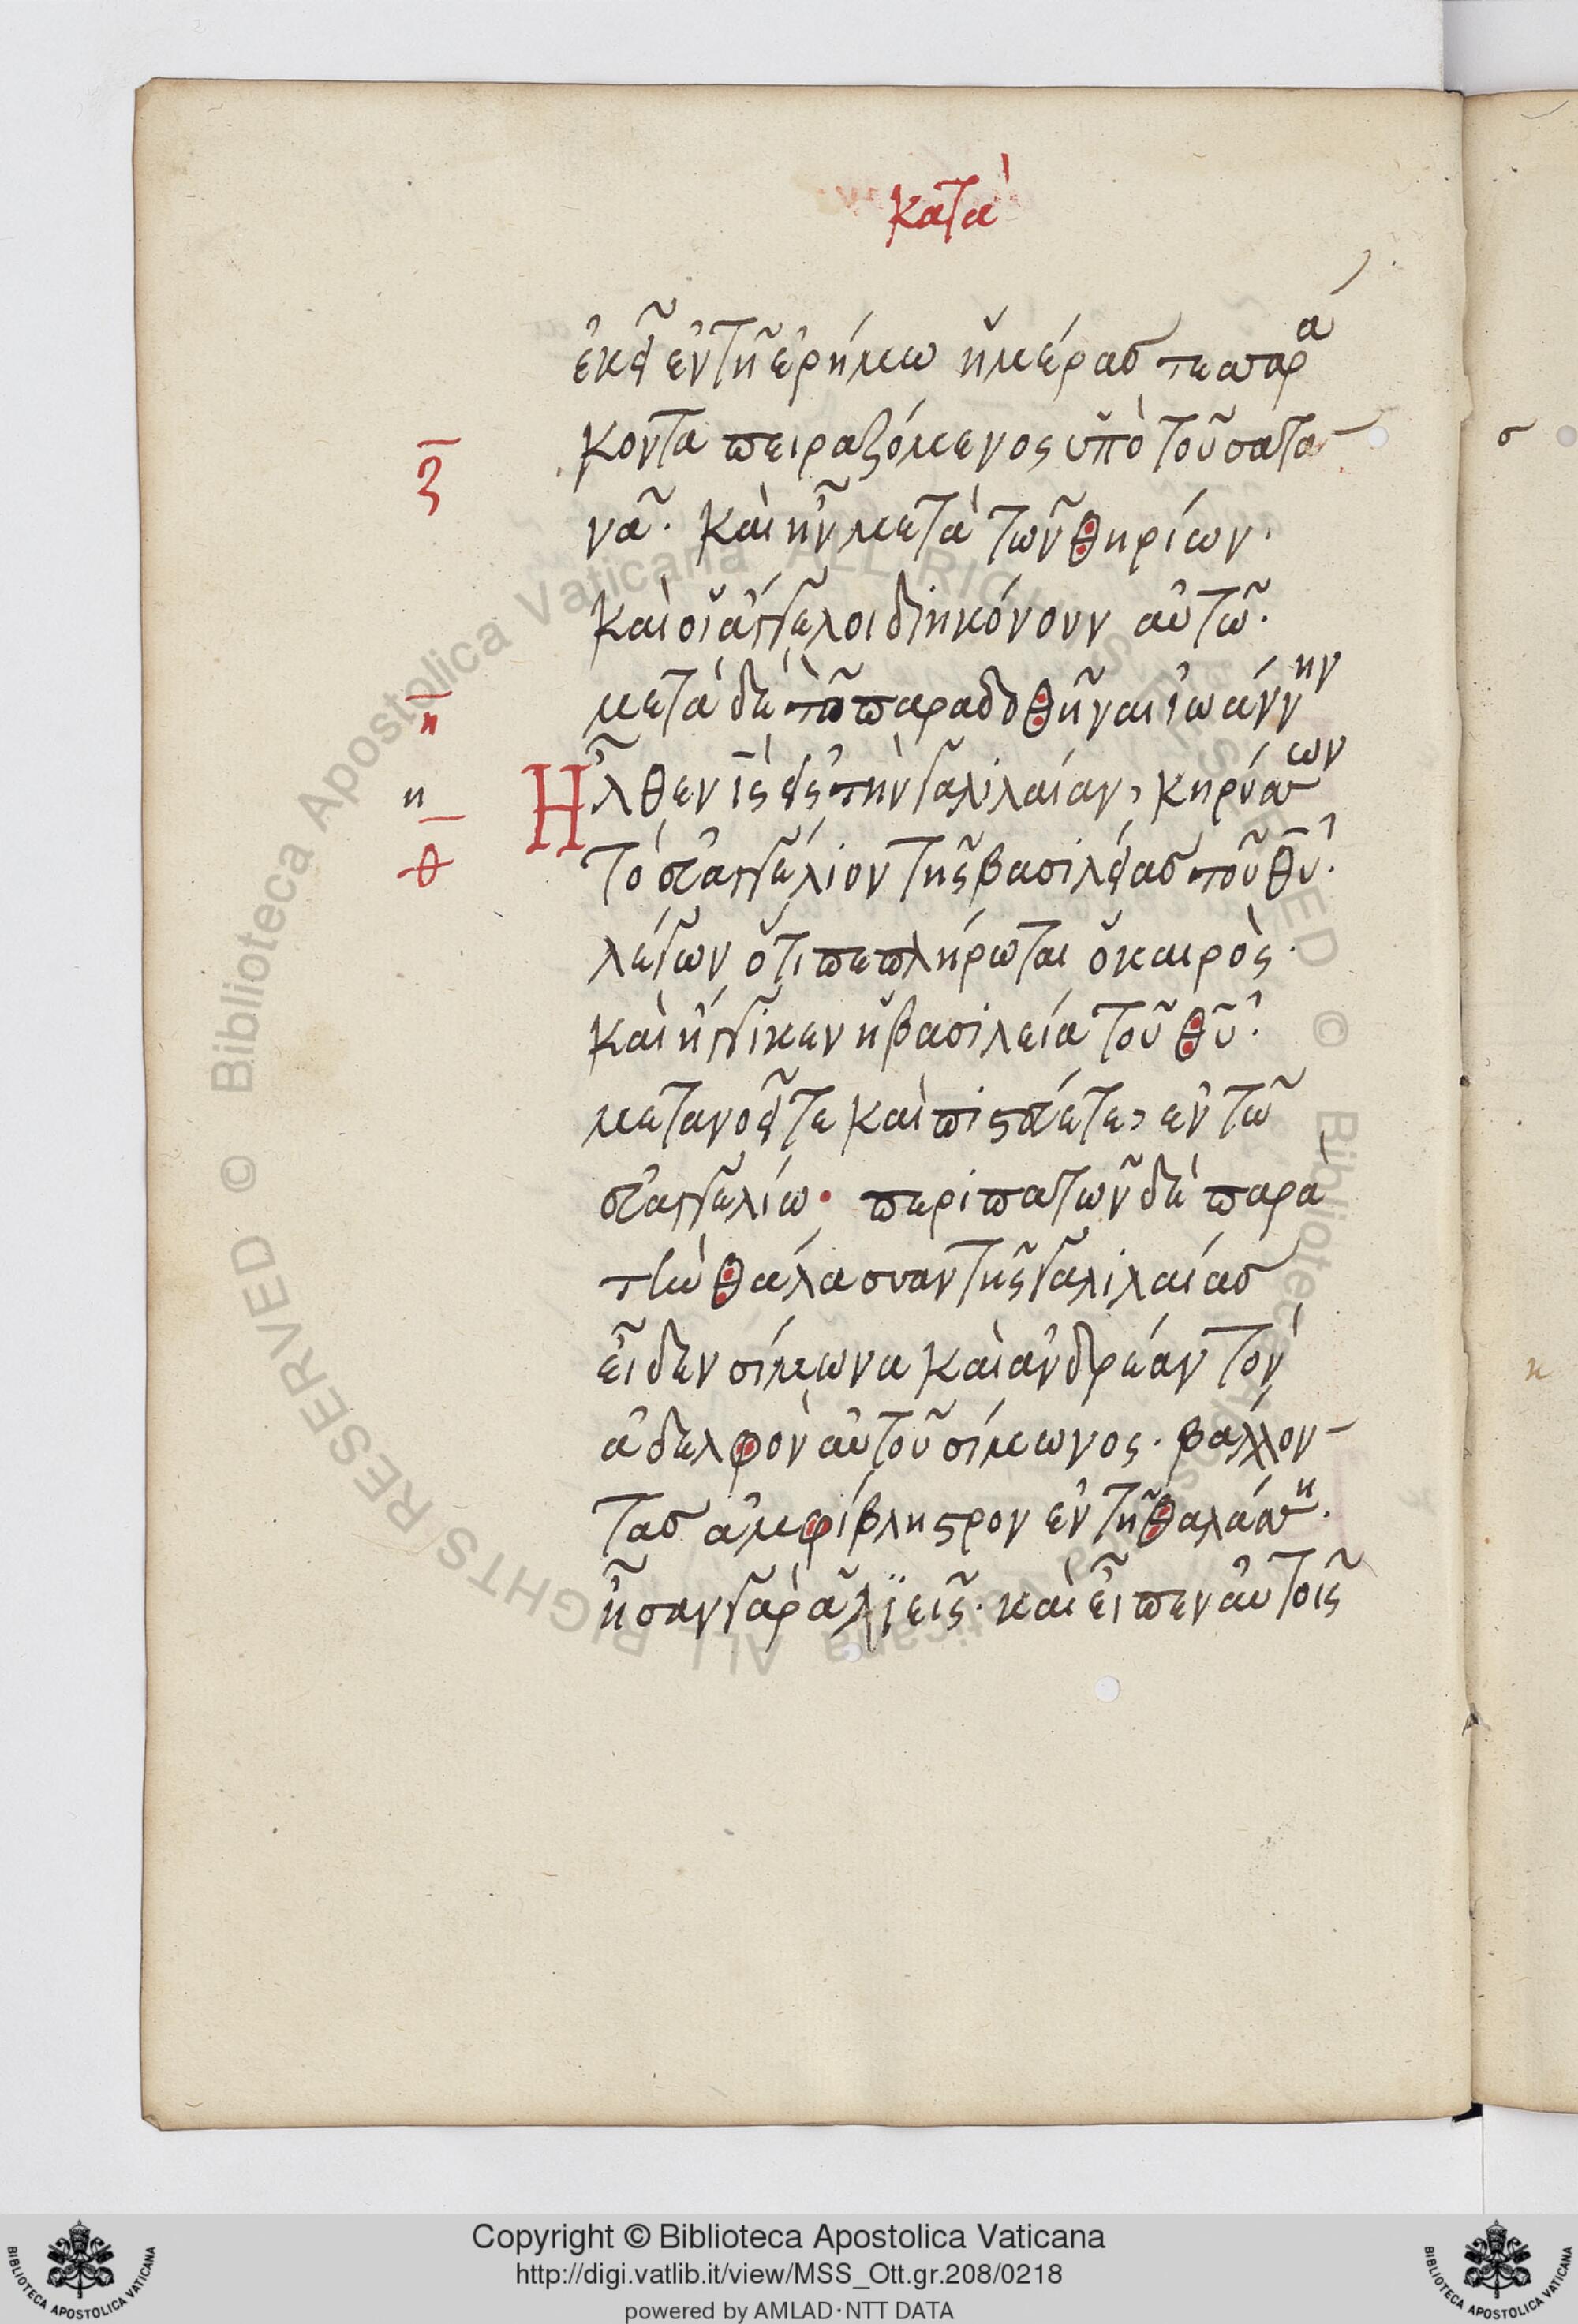 κατὰ
ἐκεῖ ἐν τῆ ἐρήμω ἡμέρας τεσσαρά
κοντα πειραζόμενος ὑπὸ τοῦ σατα-
νᾶ. καὶ ἦν μετὰ τῶν θηρίων.
ζ
καὶ οἱ ἄγγελοι διηκόνουν αὐτῶ.
μετὰ δὲ τὸ παραδοθῆναι ἰωάννην
η
Ἦλθεν ἰς εἰς τὴν γαλιλαίαν, κηρύσσων
η
τὸ εὐαγγέλιον τῆς βασιλείας τοῦ θυ.
θ
λέγων ὅτι πεπλήρωται ὁ καιρὸς.
καὶ ἤγγικεν ἡ βασιλεία τοῦ θυ.
μετανοεῖτε καὶ πιστεύετε, ἐν τῶ
εὐαγγελίω. περιπατῶν δὲ παρὰ
τὴν θάλασσαν τῆς γαλιλαίας
εἶδεν σίμωνα καὶ ἀνδρέαν τὸν
ἀδελφὸν αὐτοῦ σίμωνος. βάλλον-
τας ἀμφίβληστρον ἐν τῆ θαλάσση.
ἦσαν γὰρ ἁλϊεῖς. καὶ εἶπεν αὐτοῖς
© Biblioteca Apostolica Vaticana ALL RIGHTS RESERVED © Biblioteca Apostolica Vaticana ALL RIGHTS RESERVED
Copyright © Biblioteca Apostolica Vaticana
http://digi.vatlib.it/view/MSS_Ott.gr.208/0218
powered by AMLAD·NTT DATA
BIBLIOTECA APOSTOLICA VATICANA
BIBLIOTECA APOSTOLICA VATICANA